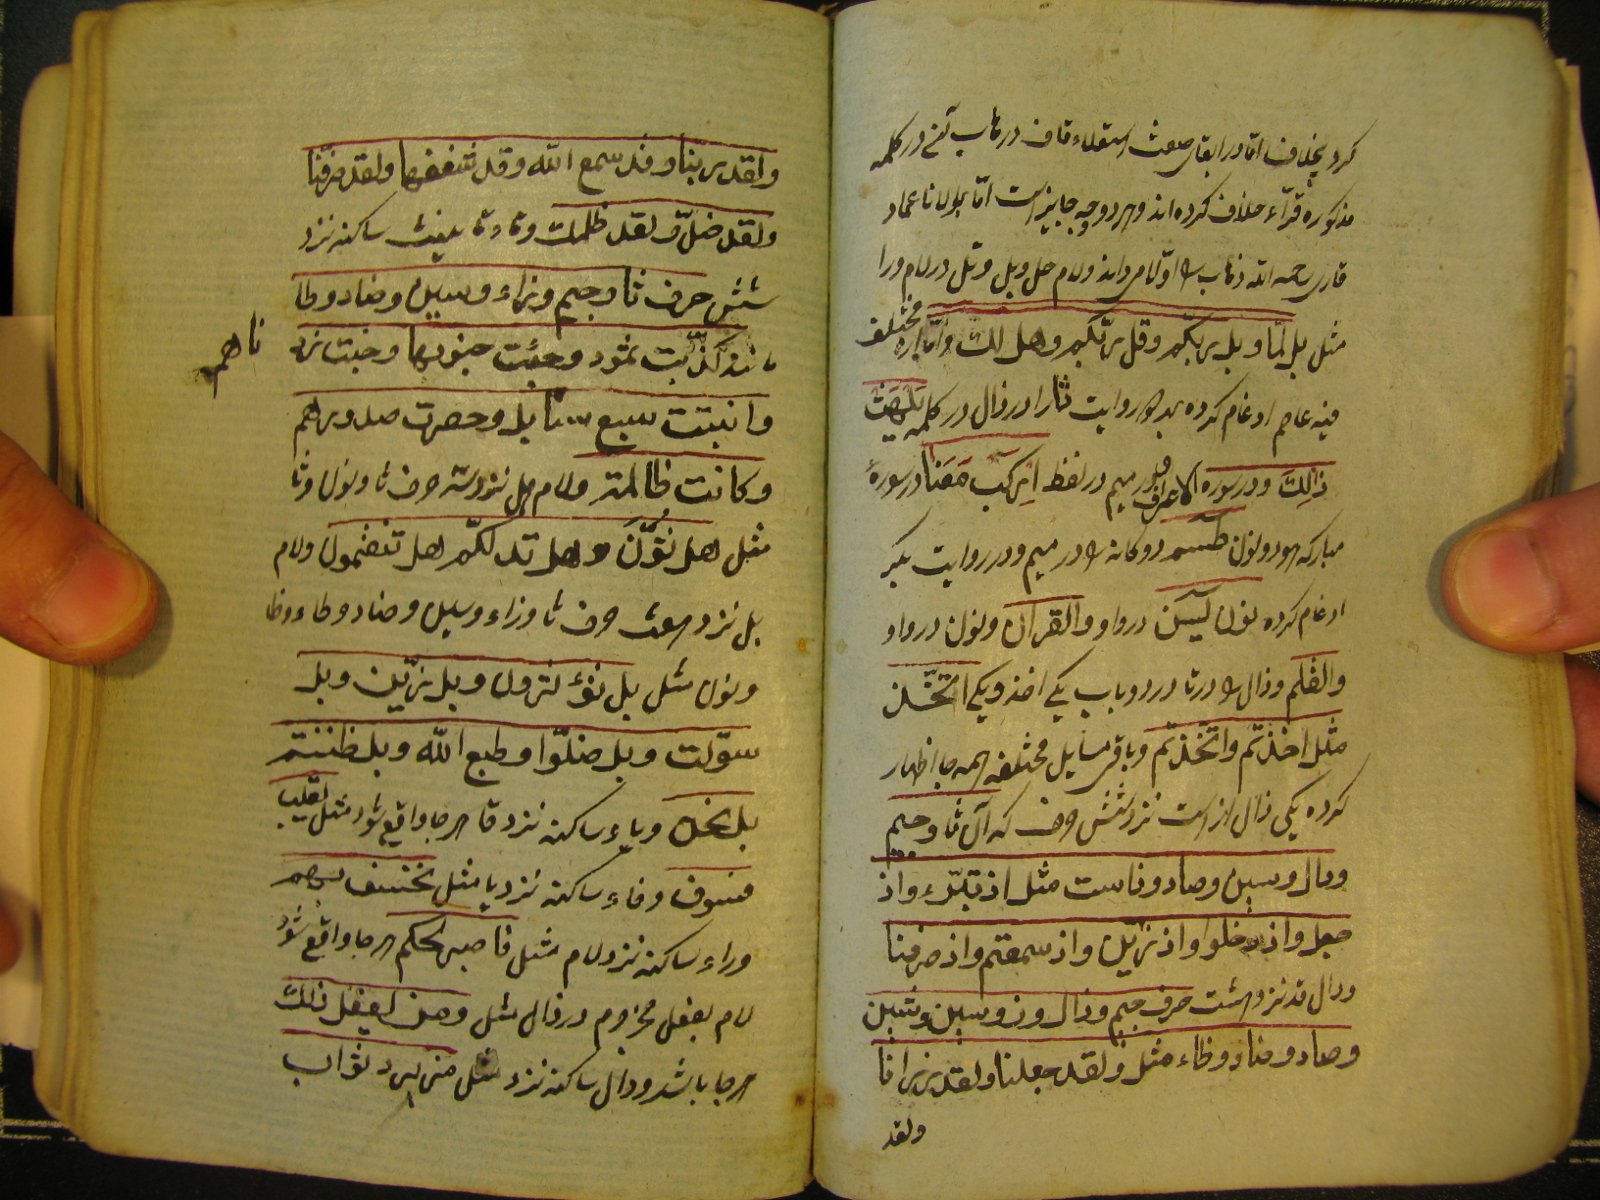 کرد بخلاف اما در ابقای صفت استعلاء قاف در ذهاب آنفی در کلمه
مذکوره قرّاء خلاف کرده اند و هر دو وجه جایز است امّا مولانا عماد
قاری رحمه الله ذهاب را اولی میداند و لام هل و بل و قل در لام و را
مثل بل لمّا و بل ربّکم و قل ربّکم و هل لک و امّا آنچه مختلف
فیه عاصم ادغام کرده بهر دو روایت ثا را در ذال در کلمه یَلْهَثْ
ذَالِكَ و در سوره الاعراف و در میم در لفظ ارکَب مَعَنا در سورهٔ
مبارکه هود و نون طسم دوکانه را در میم و در روایت بکر
ادغام کرده نون یس در واو والقرآن و نون در واو
والقلم و ذال را در تا در دو باب یکی اخذ و یکی اتّخذ
مثل اخذتم واتّخذتم و باقی مسایل مختلفه همه جا اظهار
کرده یکی ذال اذ است نزد شش حرف که آن تا و جیم
ودال وسین وصاد وزاست مثل اذ تبرّء واذ
جعل واذ دخلوا واذ زیّن واذ سمعتم واذ صرفنا
و دال قد نزد هشت حرف جیم و ذال و ز و سین و شین
وصاد وضاد وظاء مثل ولقد جعلنا ولقد ذرانا
ولقد
ولقد زینا وقد سمع الله وقد شغفها ولقد صرفنا
ولقد ضلّ ولقد ظلمک و تاء تانیث ساکنه نزد
شش حرف ثا وجیم وزاء وسین وصاد وظا
مانند کذّبت ثمود و جنوبها و خبت زد
ناهم
وانبتت سبع سنابل وحصرت صدورهم
وکانت ظالمة ولام هل نزد سه حرف تا و نون و ثا
مثل هل ثوّب وهل ندلکم هل تنقمون ولام
بل نزد هفت حرف تا وزاء وسین وضاد وطاء وظا
ونون مثل بل تؤثرون وبل زیّن وبل
سوّلت وبل ضلّوا وطبع الله وبل ظننتم
بل نحن و باء ساکنه نزد فا هر جا واقع شود مثل یغلب
فسوف و فاء ساکنه نزد با مثل نخسف بهم
و راء ساکنه نزد لام مثل فاصبر لحکم هر جا واقع شود
لام یفعل مجزوم در ذال مثل ومن یفعل ذلك
هر جا باشد و دال ساکنه نزد مثل من یرد ثواب